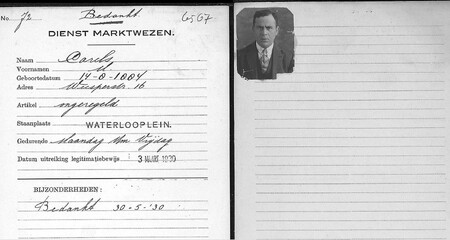 No. 72 Bedankt 6567
DIENST MARKTWEZEN.
Naam Carels
Voornamen M
Geboortedatum 14-8-1884
Adres Weesperstr. 16
Artikel ongeregeld
Staanplaats WATERLOOPLEIN.
Gedurende Maandag t/m Vrijdag
Datum uitreiking legitimatiebewijs 3 MAART 1930
BIJZONDERHEDEN:
Bedankt 30-5-'30